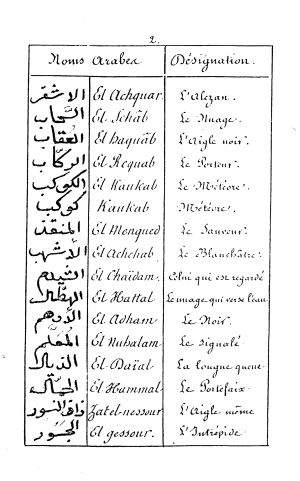 2.
Noms Arabes Désignation.
الاشقر El Achquar. L'Alezan.
السحاب El Sehâb Le Nuage.
العقاب El haquâb L'Aigle noir.
الركاب El Requab Le Porteur.
الكوكب El Kaukab Le Météore.
كوكب Kaukab Météore.
المنقذ El Menqued Le Sauveur.
الاشهب El Achehab Le Blanchâtre.
El Chaïdam. Celui qui est regardé
الهطال El Hattal Le nuage qui verse l'eau.
الادهم El Adham Le Noir.
المعلم El Muhalam Le signalé
الذيال El Daïal La longue queue
الحمال El Hammal Le Portefaix.
ذات النسور Zatel-nessour L'Aigle même
الجسور El gessour. L'Intrépide